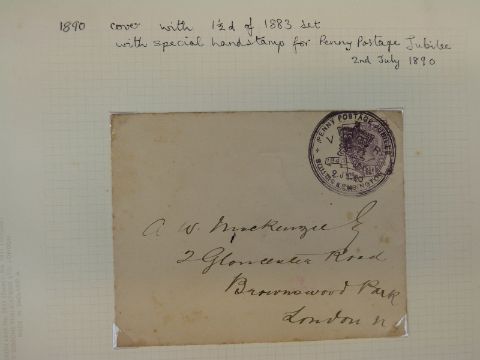 1890 cover with 1½d of 1883 set
with special handstamp for Penny Postage Jubilee
2nd July 1890
PENNY POSTAGE JUBILEE
V R
2 JY 90
SOUTH KENSINGTON
A. W. Mackenzie Esq
2 Gloucester Road
Brownswood Park
London N.